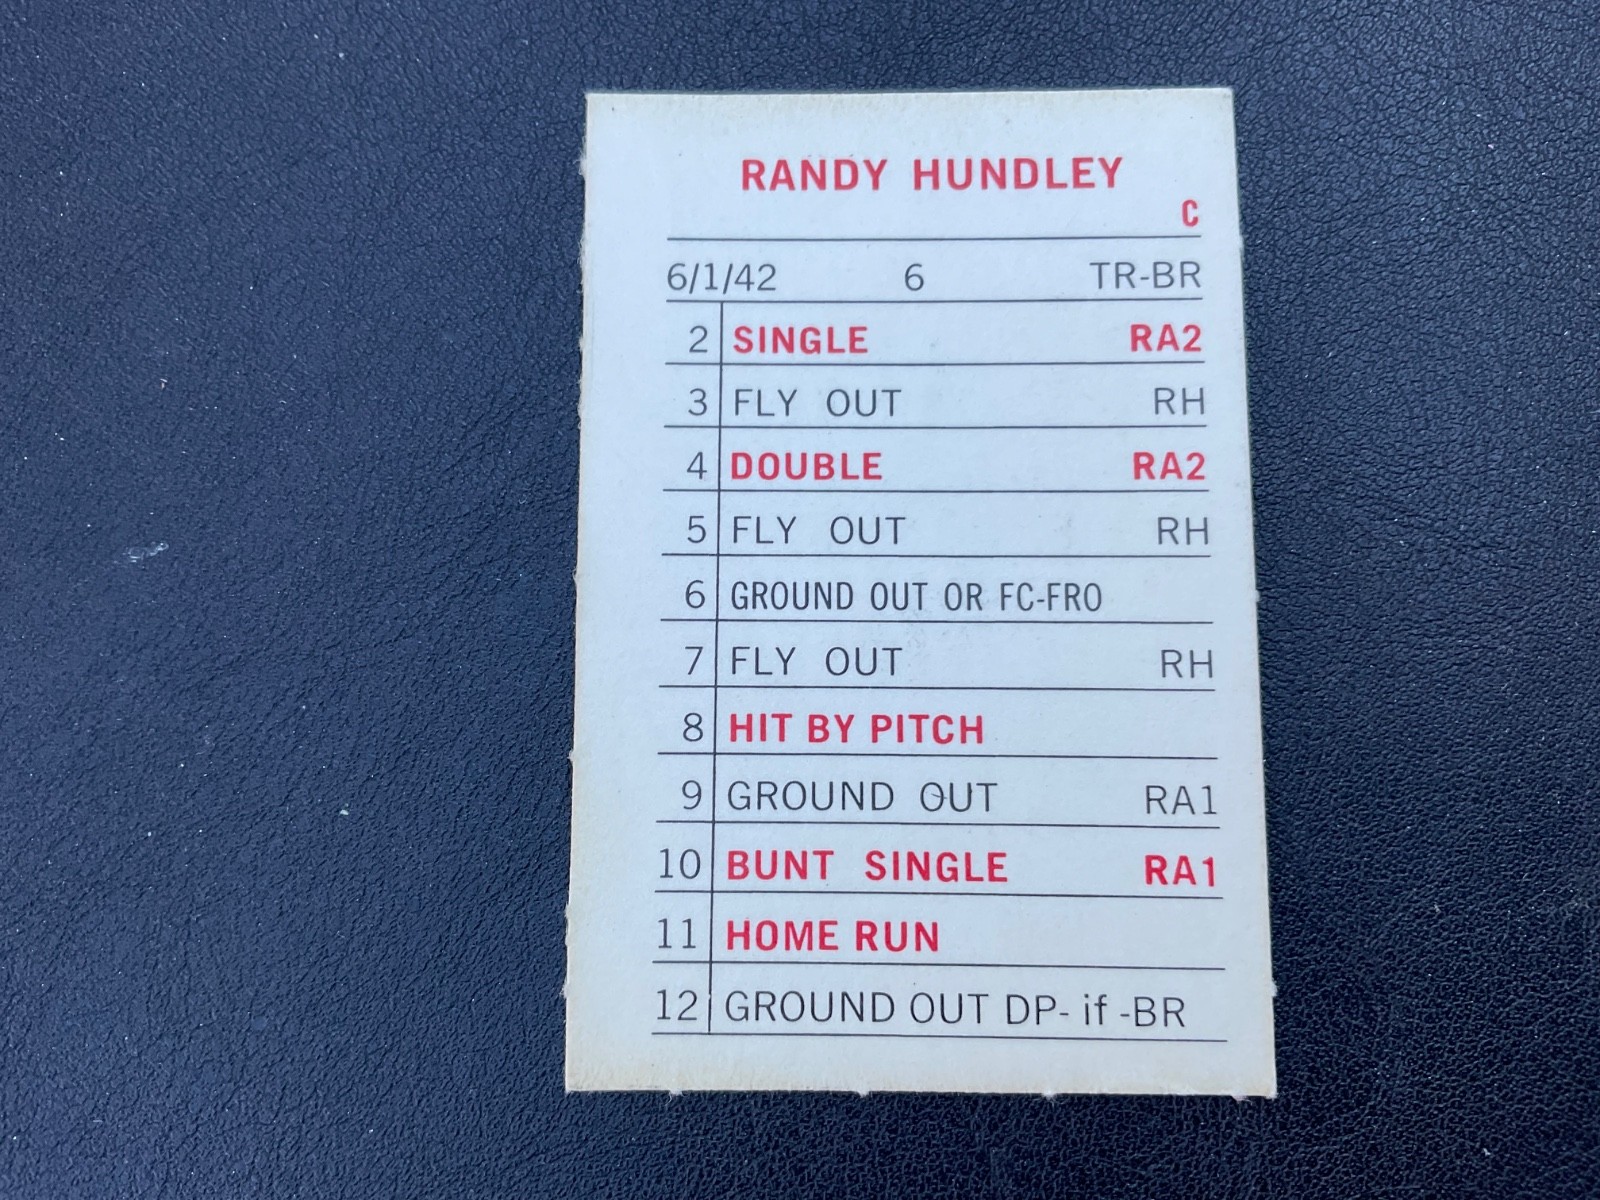 RANDY HUNDLEY
C
6/1/42 6 TR-BR
2 SINGLE RA2
3 FLY OUT RH
4 DOUBLE RA2
5 FLY OUT RH
6 GROUND OUT OR FC-FRO
7 FLY OUT RH
8 HIT BY PITCH
9 GROUND OUT RA1
10 BUNT SINGLE RA1
11 HOME RUN
12 GROUND OUT DP- if -BR